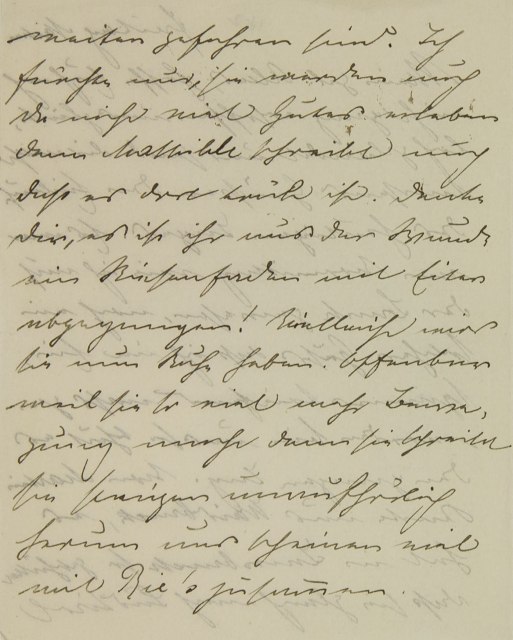 weiter gefahren sind. Ich
fürchte nur, sie werden auch
da nicht viel Gutes erleben
denn Mathilde schreibt auch
daß es dort trüb ist. Denke
Dir, es ist ihr aus der Wunde
ein Riesenfaden mit Eiter
abgegangen! Vielleicht wird
sie nun Ruhe haben. Offenbar
weil sie so viel mehr Bewe-
gung macht denn sie schreibt
sie steigen unaufhörlich
herum und scheinen viel
mit Rie's zusammen.